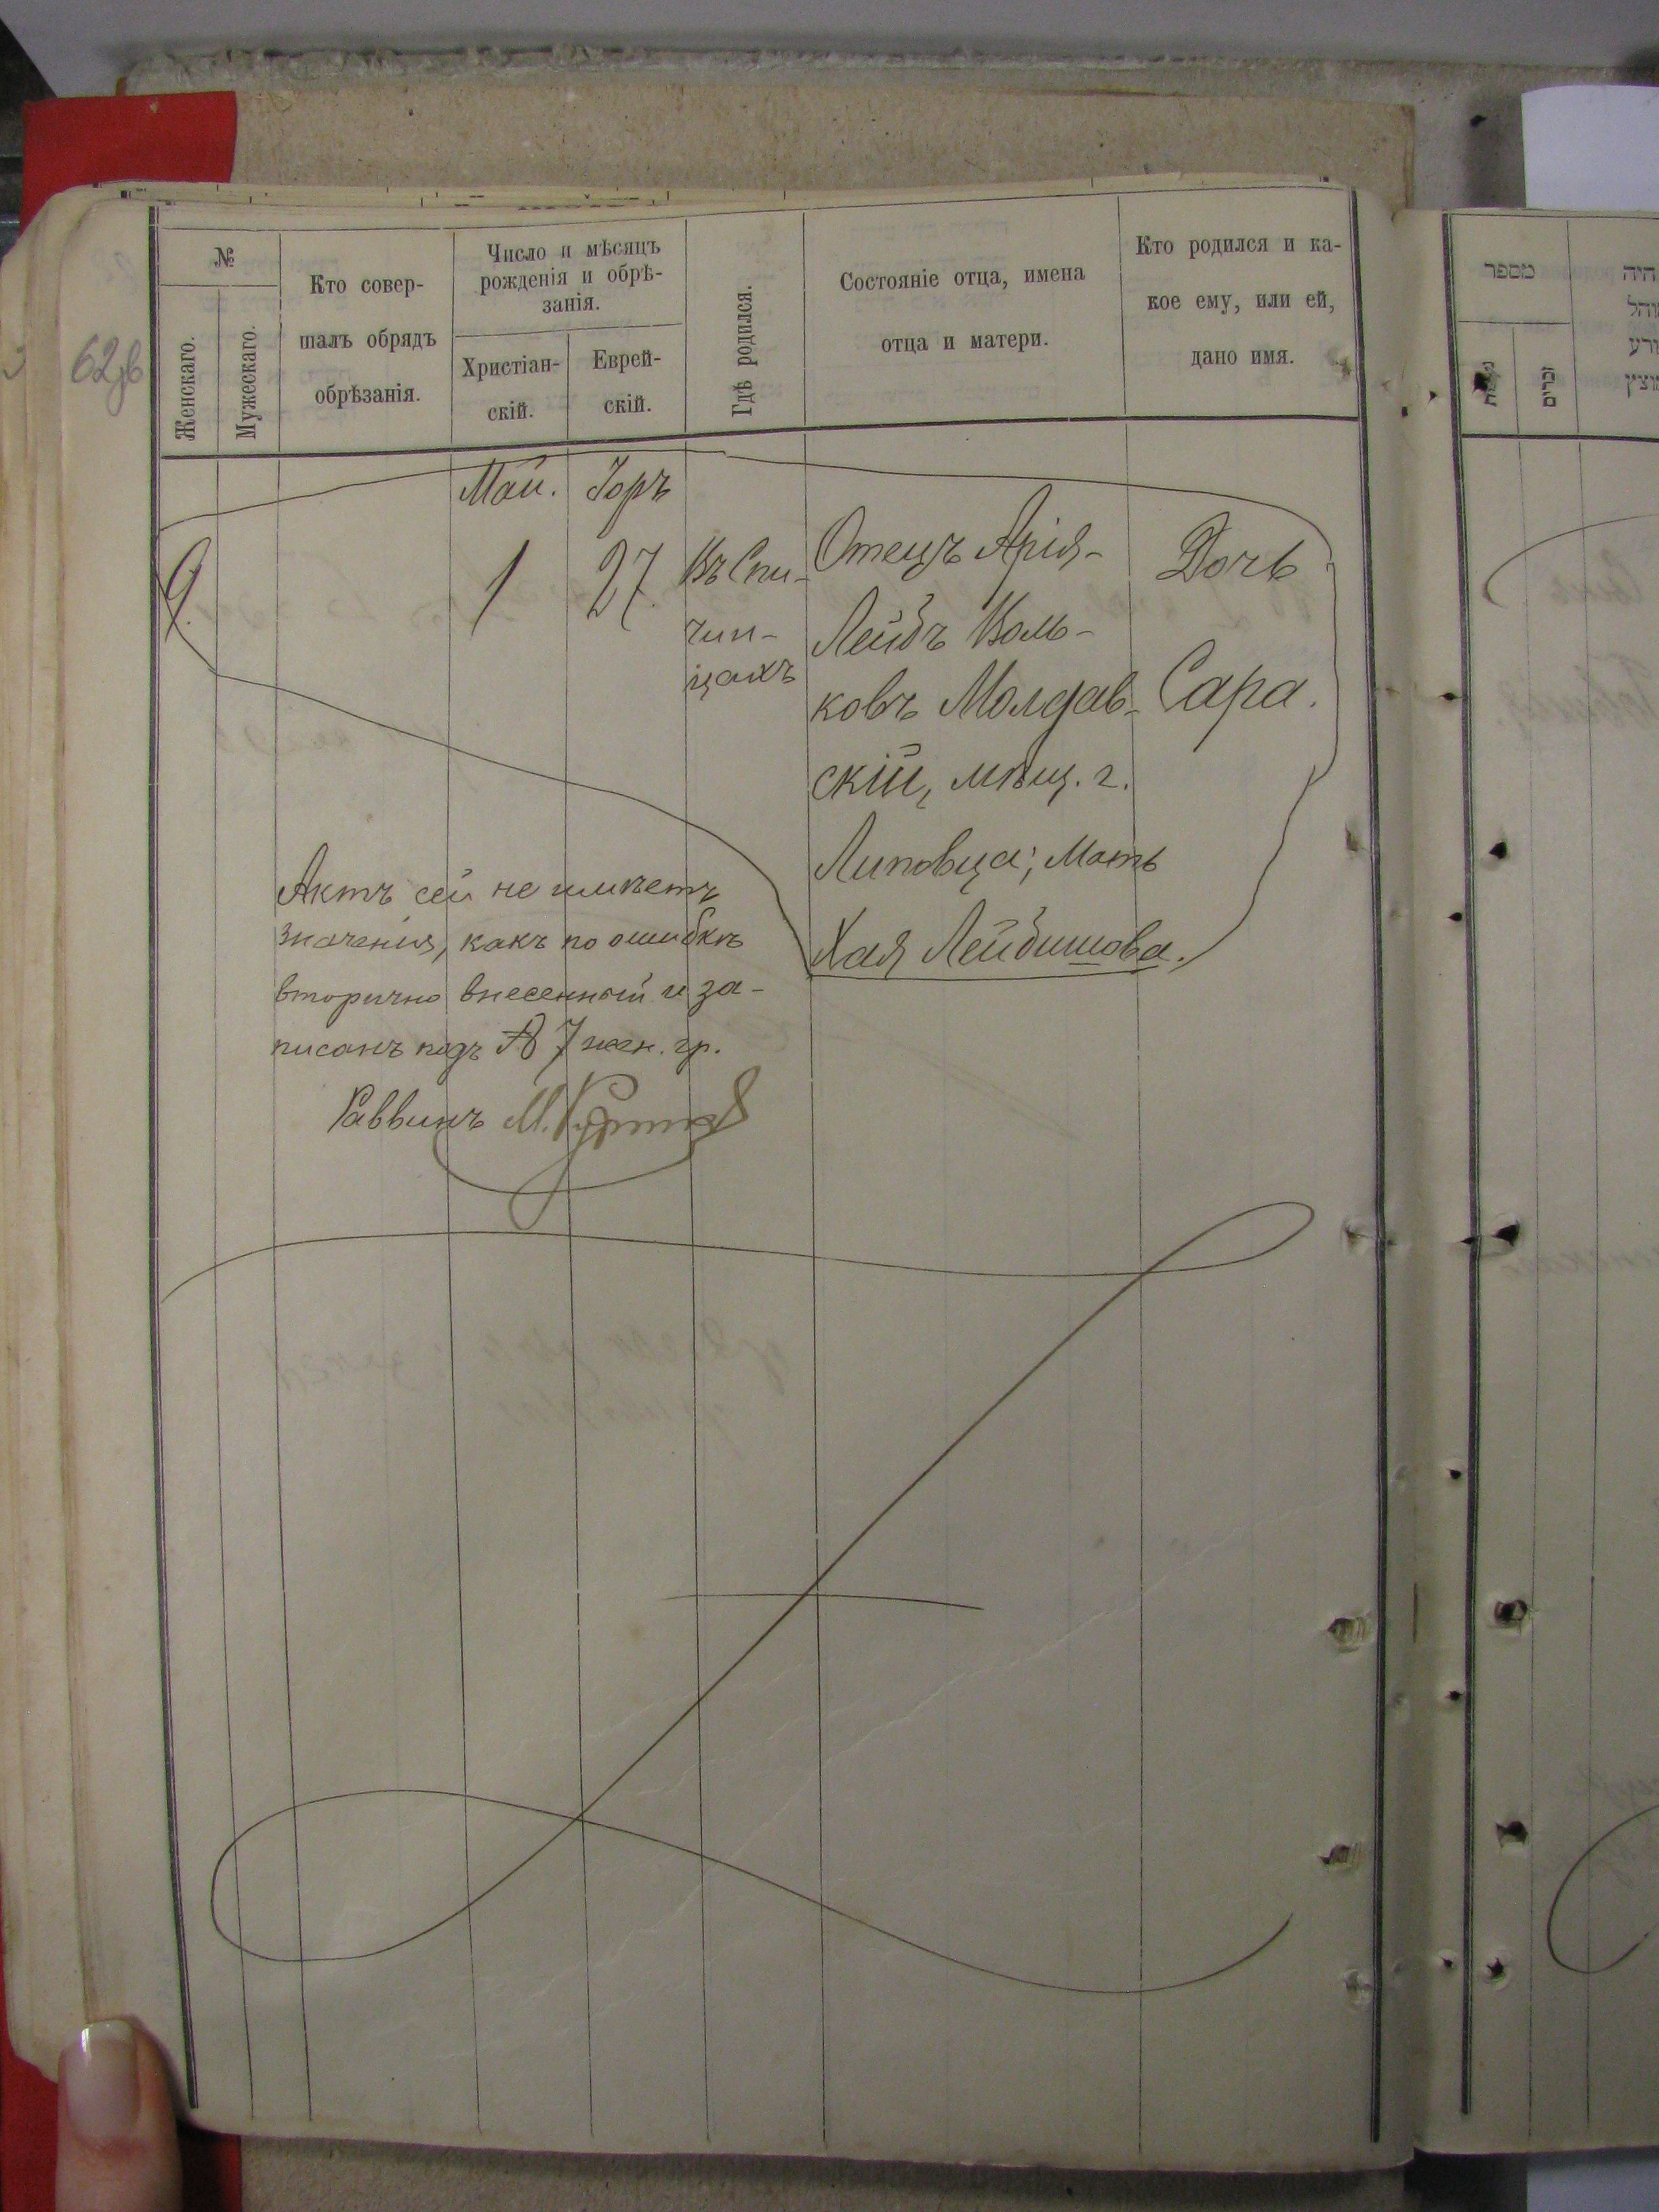 №
Женскаго.
Мужескаго.
Кто совер-
шалъ обрядъ
обрѣзанія.
Число и мѣсяцъ
рожденія и обрѣ-
занія.
Христіан-
скій.
Еврей-
скій.
Гдѣ родился.
Состояніе отца, имена
отца и матери.
Кто родился и ка-
кое ему, или ей,
дано имя.
62
Май. Іоръ
9. 1 27
Въ Спи-
чин-
цахъ
Отецъ Арія-
Лейбъ Воль-
ковъ Молдав-
скій, мѣщ. г.
Липовца; Мать
Хая Лейбишова.
Дочь
Сара.
Актъ сей не имѣетъ
значенія, какъ по ошибкѣ
вторично внесенный и за-
писанъ подъ № 7 жен. гр.
Раввинъ М.
מספר
זכרים